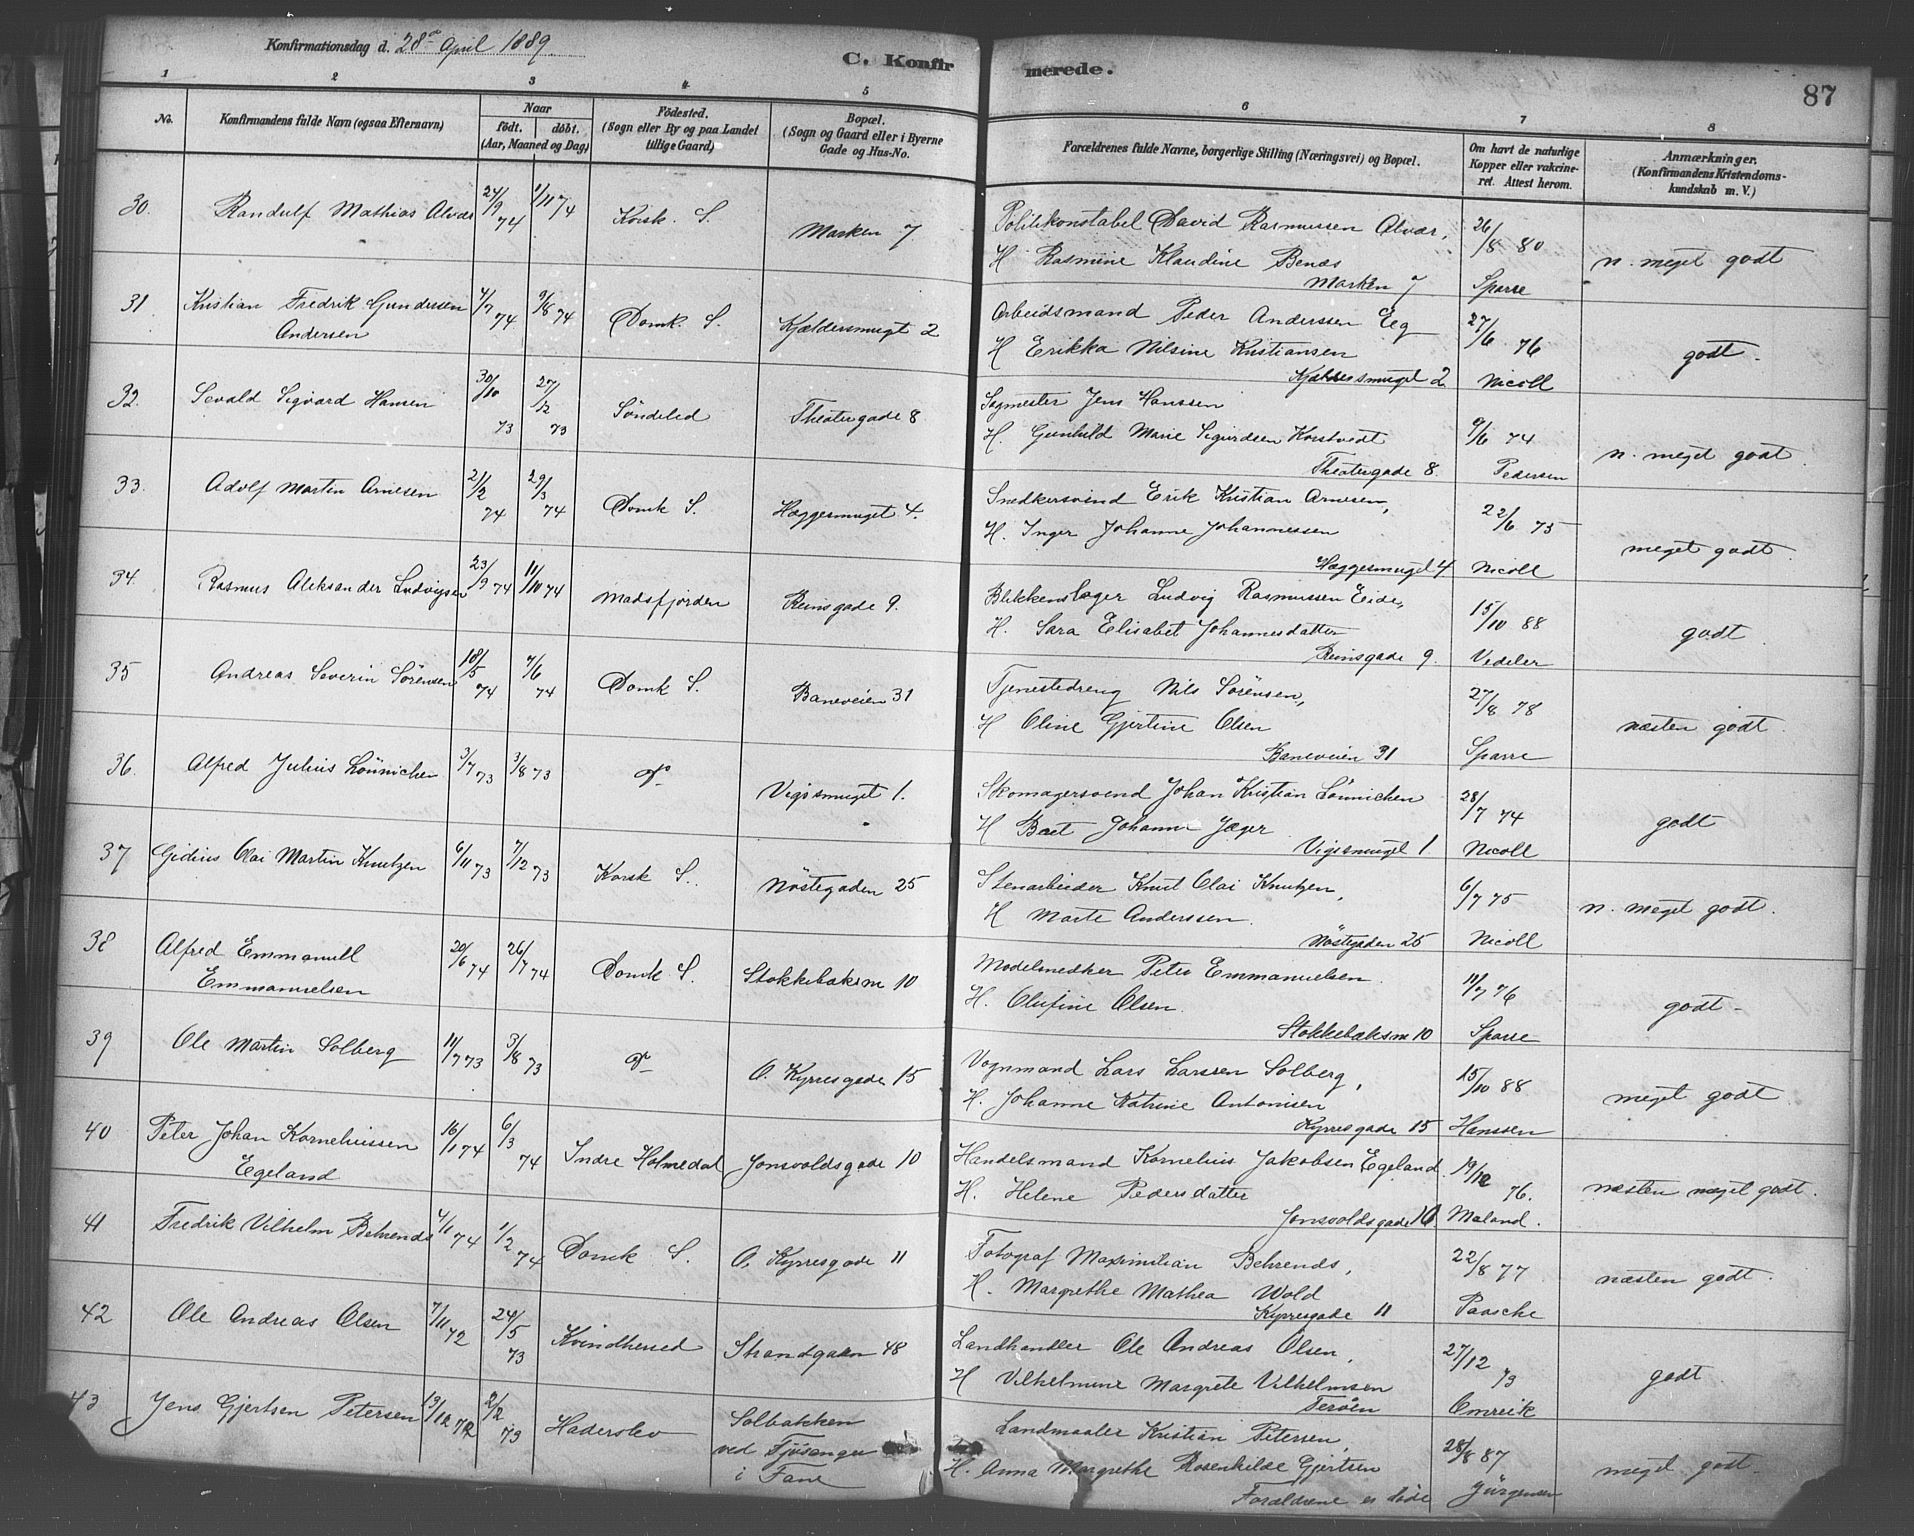 Konfirmationsdag d. 28de April 1889.
C. Konfirmerede.
87
1 2 3 4 5 6 7 8
No.
Konfirmandens fulde Navn (ogsaa Efternavn)
Naar
födt. döbt.
(Aar, Maaned og Dag)
Födested.
(Sogn eller By og paa Landet
tillige Gaard)
Bopæl.
(Sogn og Gaard eller i Byerne
Gade og Hus-No.
Forældrenes fulde Navne, borgerlige Stilling (Næringsvei) og Bopæl.
Om havt de naturlige
Kopper eller vakcineret. Attest herom.
Anmærkninger.
(Konfirmandens Kristendomskundskab m. V.)
30. Randulf Mathias Alvær 24/9 74 1/11 74 Korsk. S. Marken 7
Politikonstabel David Rasmussen Alvær, 26/8 80
H. Rasmine Klaudine Benæs n. meget godt
Marken 7 Sparre
31 Kristian Fredrik Gundersen 4/7 74 9/8 74 Domk. S. Kjældersmuget 2
Andersen
Arbeidsmand Peder Anderssen Eeg 27/6 76
H Erikka Nilsine Kristiansen godt.
Kjældersmuget 2 Nicoll
32. Sevald Sigvard Hansen 30/10 73 27/12 73 Söndeled Theatergade 8
Sagmester Jens Hanssen
H. Gunhild Marie Sigurdsen Korstvedt 9/6 74 n. meget godt.
Theatergade 8. Pedersen
33. Adolf Martin Arnesen 21/2 74 29/3 74 Domk S. Hæggesmuget 4.
Snedkersvend Erik Kristian Arnesen, 22/6 75
H. Inger Johanne Johannessen meget godt.
Hæggesmuget 4 Nicoll
34. Rasmus Aleksander Ludvigsen 23/9 74 11/10 74 Madsfjorden Reinsgade 9.
Blikkenslager Ludvig Rasmussen Eide, 15/10 88
H. Sara Elisabet Johannesdatter godt
Reinsgade 9. Vedeler
35 Andreas Severin Sörensen 18/5 74 7/6 74 Domk S. Baneveien 31
Tjenestedreng Nils Sörensen, 27/8 78
H Oline Gjertine Olsen næsten godt.
Baneveien 31 Sparre
36. Alfred Julius Lönnichen 3/7 73 3/8 73 do Vigsmuget 1.
Skomagersvend Johan Kristian Lönnichen 28/7 74
H Johanne Jæger godt
Vigssmuget 1. Nicoll
37 Gidius Olai Martin Knutzen 6/11 73 7/12 73 Korsk S. Nöstegaden 25
Stenarbeider Knut Olai Knutzen, 6/7 75
H Marte Anderssen. n. meget godt.
Nöstegaden 25 Nicoll
38 Alfred Emmanuell 20/6 74 26/7 74 Domk S. Stokkebæksm 10
Emmanuelsen
Modelsnedker Peter Emmanuelsen. 11/7 76
H. Olufine Olsen. godt -
Stokkebæksm 10 Sparre
39 Ole Martin Solberg 11/7 73 3/8 73 do O. Kyrresgade 15
Vognmand Lars Larssen Solberg, 15/10 88
H. Johanne Katrine Antonisen meget godt.
Kyrresgade 15 Hanssen
40 Peter Johan Korneliussen 16/1 74 6/3 74 Indre Holmedal Jonsvoldsgade 10
Egeland
Handelsmand Kornelius Jakobsen Egeland. 19/12 76.
H. Helene Pedersdatter næsten meget godt.
Jonsvoldsgade 10 Maland.
41 Fredrik Vilhelm Behrends 4/1 74 1/2 74 Domk S. O. Kyrresgade 11
Fotograf Maximilian Behrends, 22/8 77
H. Margrethe Mathea Wold næsten godt.
Kyrresgade 11 Paasche
42 Ole Andreas Olsen 7/11 72 24/5 73 Kvindherred Strandgaden 48
Landhandler Ole Andreas Olsen, 27/12 73
H Vilhelmine Margrete Vilhelmsen godt.
Teröen Omreik
43 Jens Gjertsen Petersen 13/12 72 2/2 73 Haderslev Solbakken
ved Fjösanger
i Fane
Landmaaler Kristian Petersen, 28/8 87
H. Anna Margrethe Rosenkilde Gjertsen meget godt.
Forældrene er döde Jürgensen